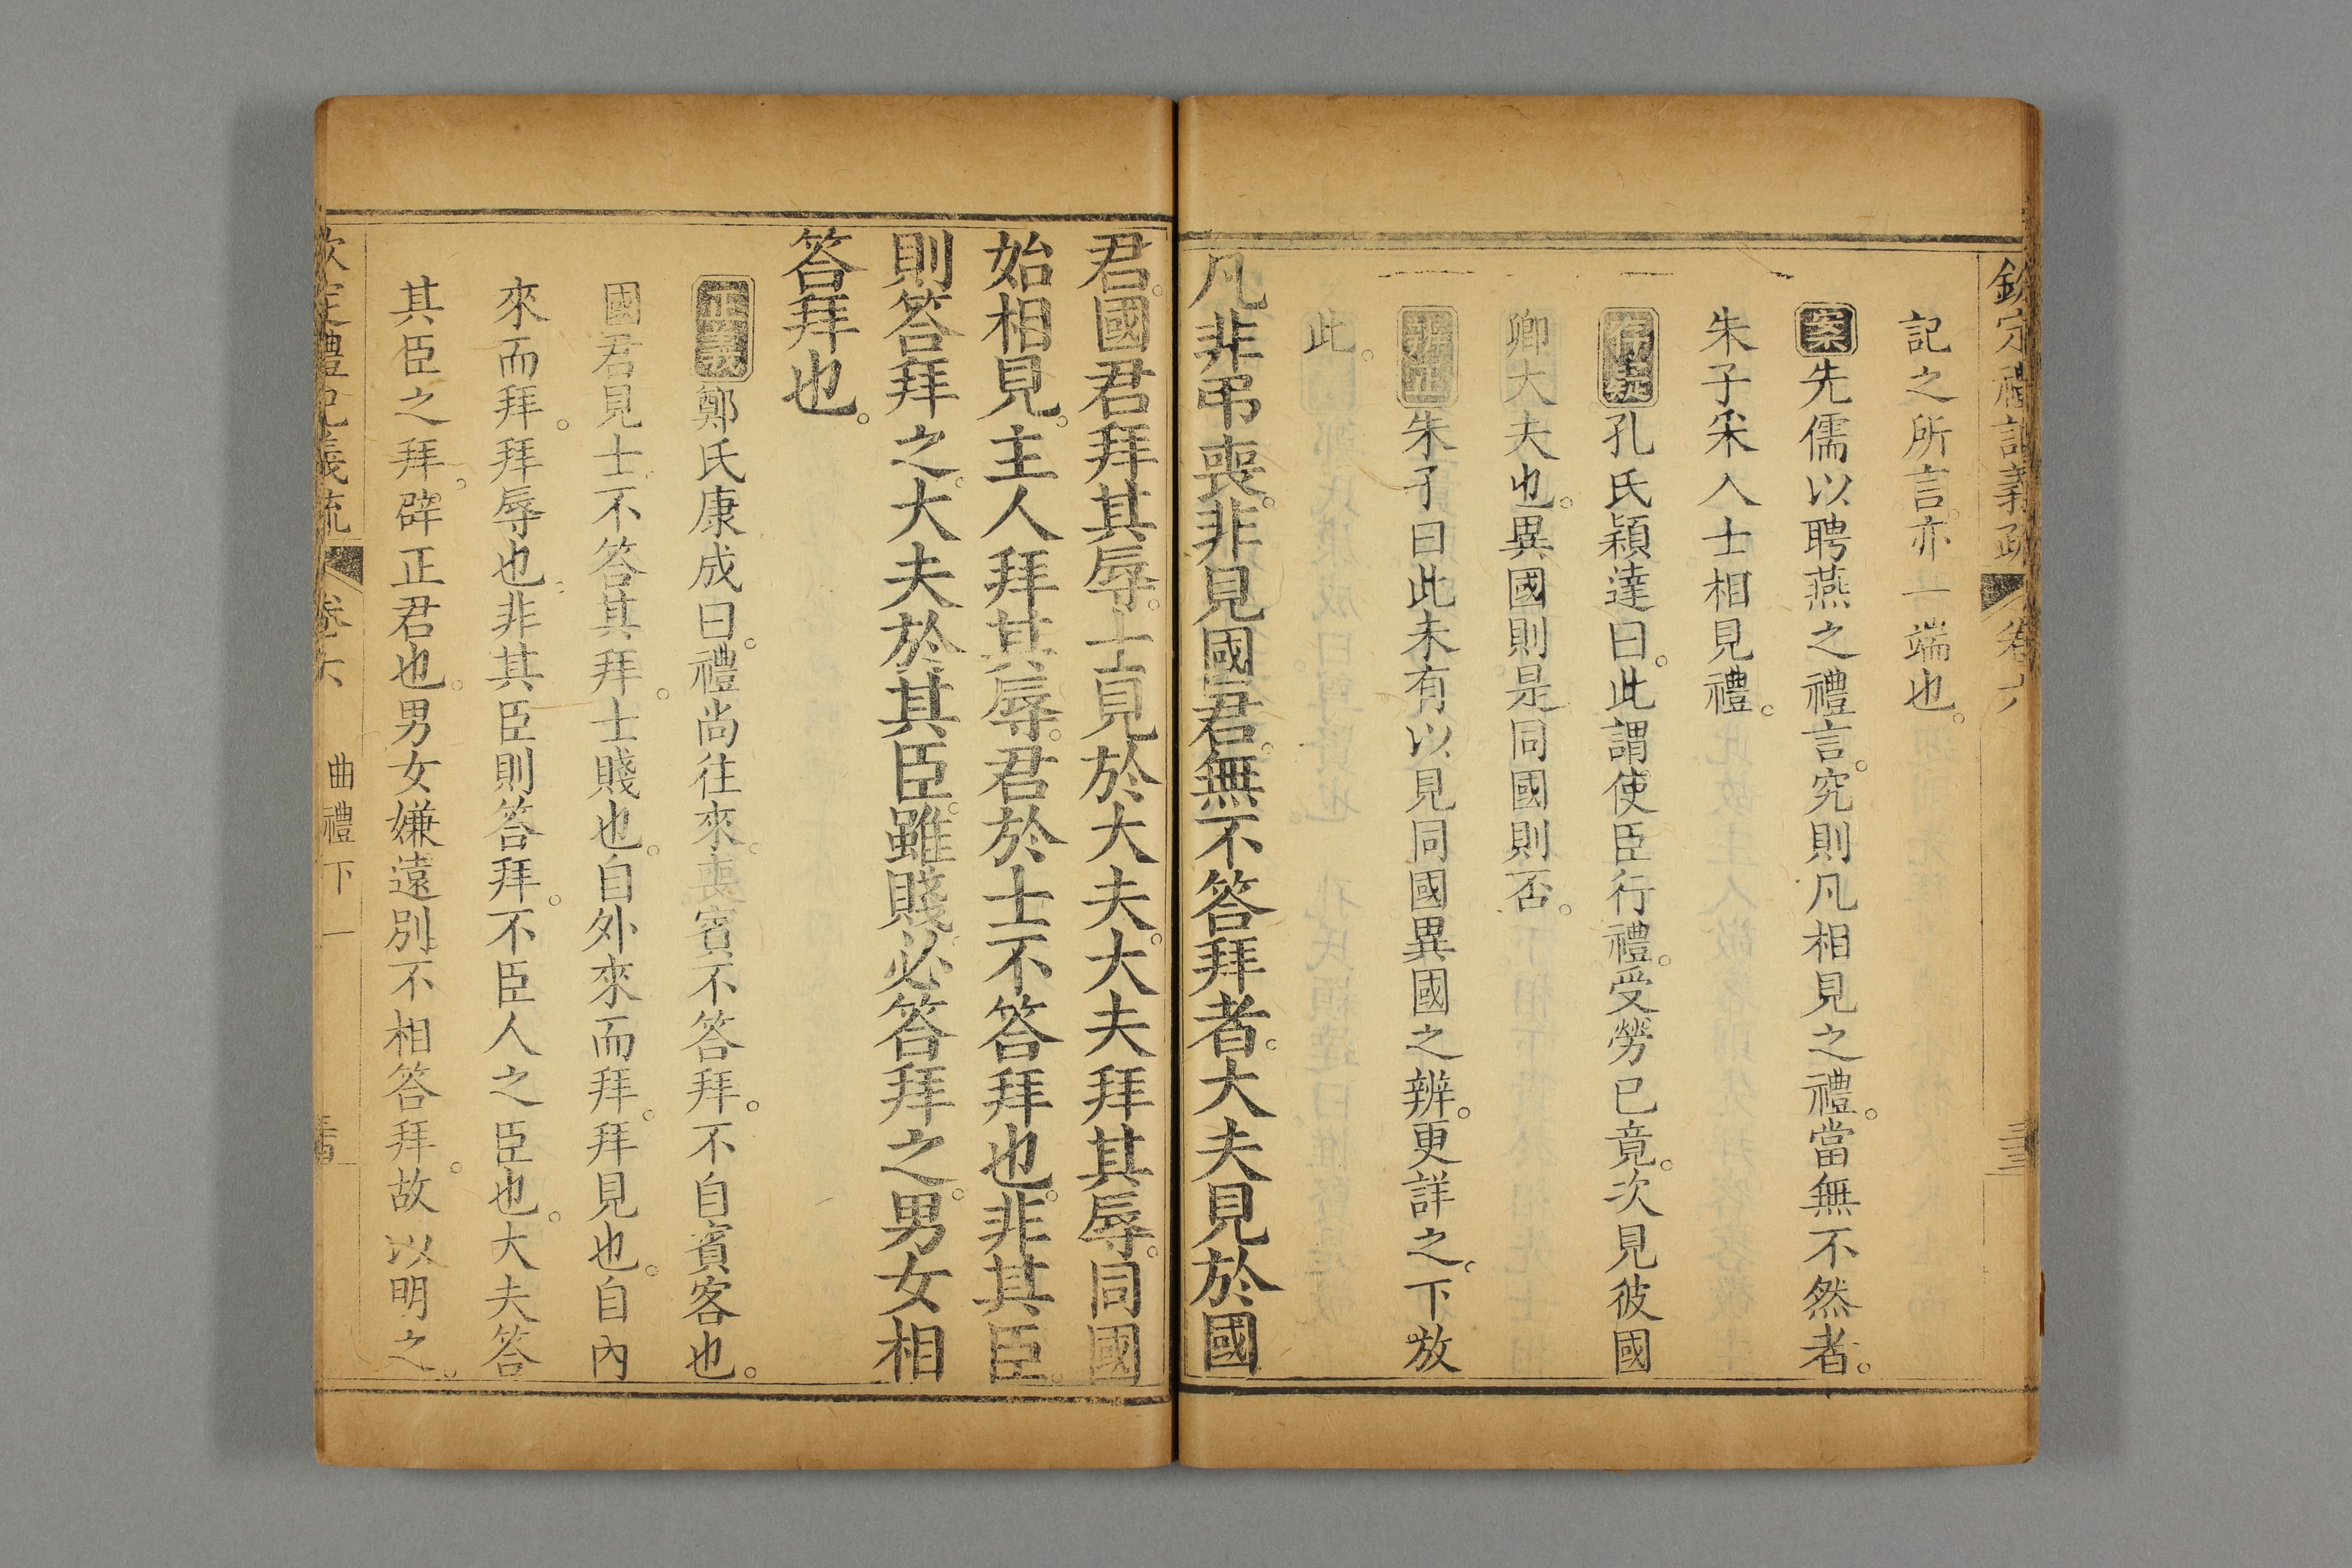 欽定禮記義疏 卷六
記之所言亦一端也。
案先儒以聘燕之禮言。究則凡相見之禮。當無不然者。
朱子采入士相見禮。
存疑孔氏穎達曰。此謂使臣行禮。受勞已竟。次見彼國
卿大夫也。異國則是。同國則否。
辨正朱子曰此未有以見同國異國之辨。更詳之。下放
此。
凡非弔喪。非見國君。無不答拜者。大夫見於國
君。國君拜其辱。士見於大夫。大夫拜其辱。同國
始相見。主人拜其辱。君於士不答拜也。非其臣。
則答拜之。大夫於其臣。雖賤必答拜之。男女相
答拜也。
正義鄭氏康成曰。禮尚往來。喪賓不答拜。不自賓客也。
國君見士不答其拜。士賤也。自外來而拜。拜見也。自內
來而拜。拜辱也。非其臣則答拜。不臣人之臣也。大夫答
其臣之拜。辟正君也。男女嫌遠別不相答拜。故以明之。
欽定禮記義疏 卷六 曲禮下一